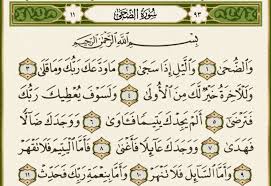 ١١ سُورَةُ الضُّحَىٰ ٩٣
بِسْمِ اللَّهِ الرَّحْمَٰنِ الرَّحِيمِ
وَالضُّحَىٰ ١ وَاللَّيْلِ إِذَا سَجَىٰ ٢ مَا وَدَّعَكَ رَبُّكَ وَمَا قَلَىٰ ٣
وَلَلْآخِرَةُ خَيْرٌ لَّكَ مِنَ الْأُولَىٰ ٤ وَلَسَوْفَ يُعْطِيكَ رَبُّكَ
فَتَرْضَىٰ ٥ أَلَمْ يَجِدْكَ يَتِيمًا فَآوَىٰ ٦ وَوَجَدَكَ ضَالًّا فَهَدَىٰ
٧ وَوَجَدَكَ عَائِلًا فَأَغْنَىٰ ٨ فَأَمَّا الْيَتِيمَ فَلَا تَقْهَرْ
٩ وَأَمَّا السَّائِلَ فَلَا تَنْهَرْ ١٠ وَأَمَّا بِنِعْمَةِ رَبِّكَ فَحَدِّثْ ١١